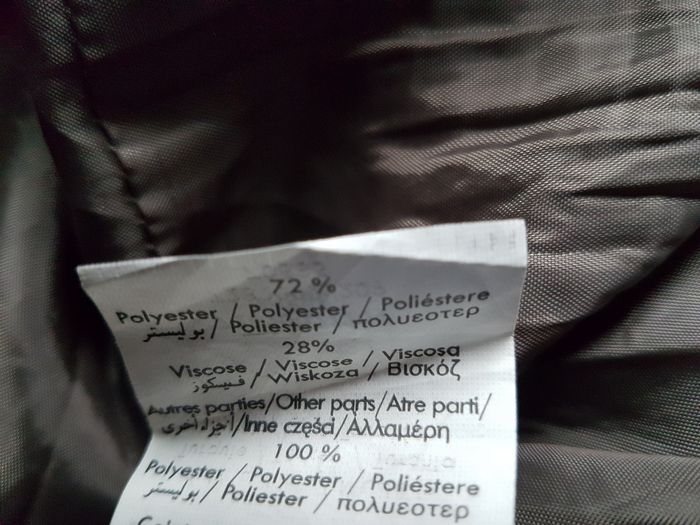 72 %
Polyester / Polyester / Poliéstere
بوليستر / Poliester / πολυεοτερ
28%
Viscose / Viscose / Viscosa
فيسكوز / Wiskoza / Βισκόζ
Autres parties/Other parts/Atre parti/
أجزاء أخرى/Inne części/Αλλαμέρη
100 %
Polyester / Polyester / Poliéstere
بوليستر / Poliester / πολυεοτερ